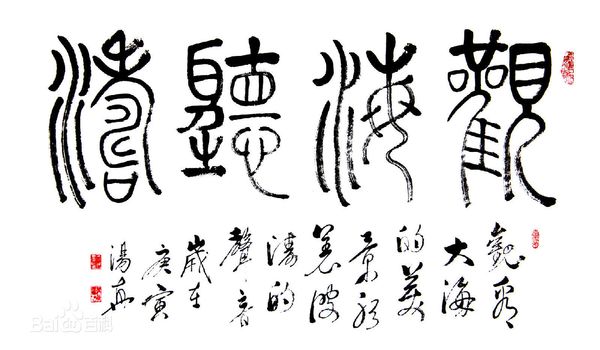 觀海聽濤
觀看
大海
的美
景
着波
濤的
聲音
歲在
庚寅
湯
Bai百科